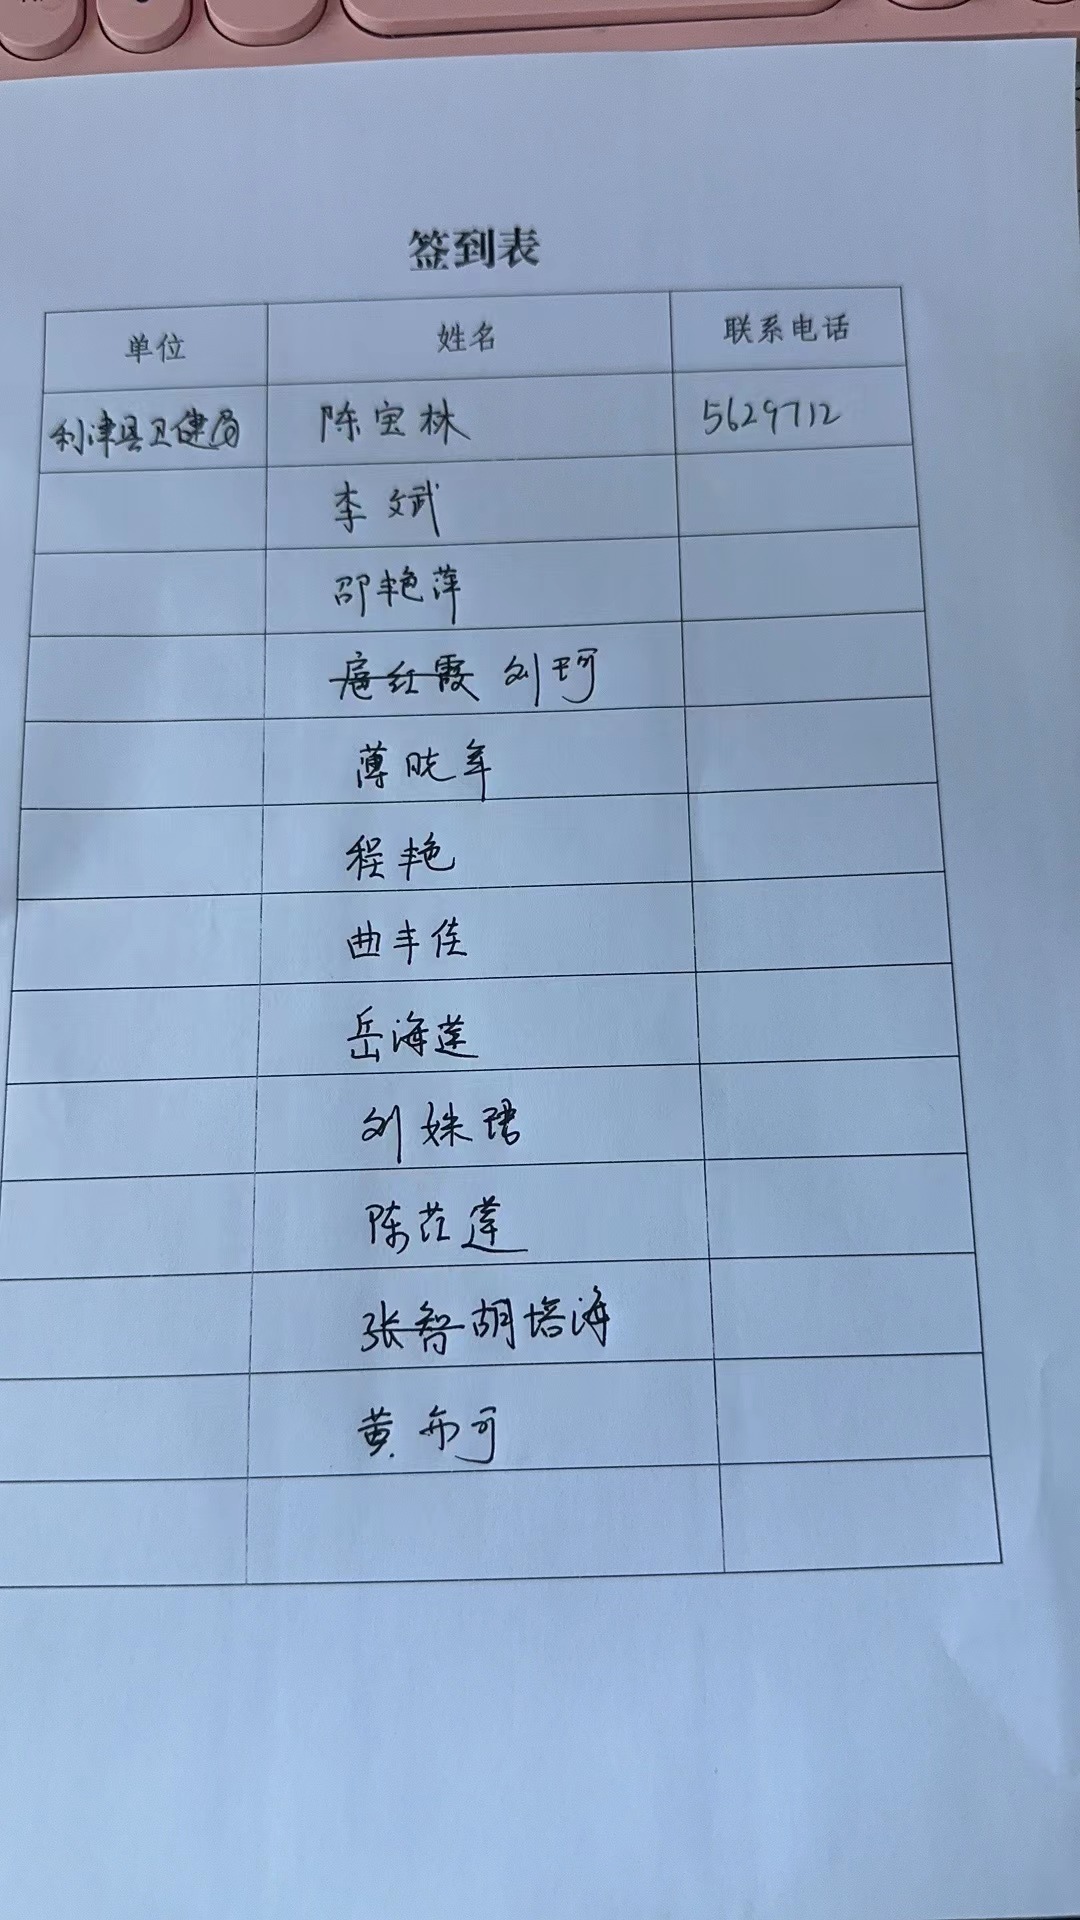 签到表
单位 姓名 联系电话
利津县卫健局 陈宝林 5629712
李斌
邵艳萍
扈红霞 刘珂
薄晓军
程艳
曲丰佳
岳海莲
刘姝珺
陈莲
张智 胡培海
黄布可